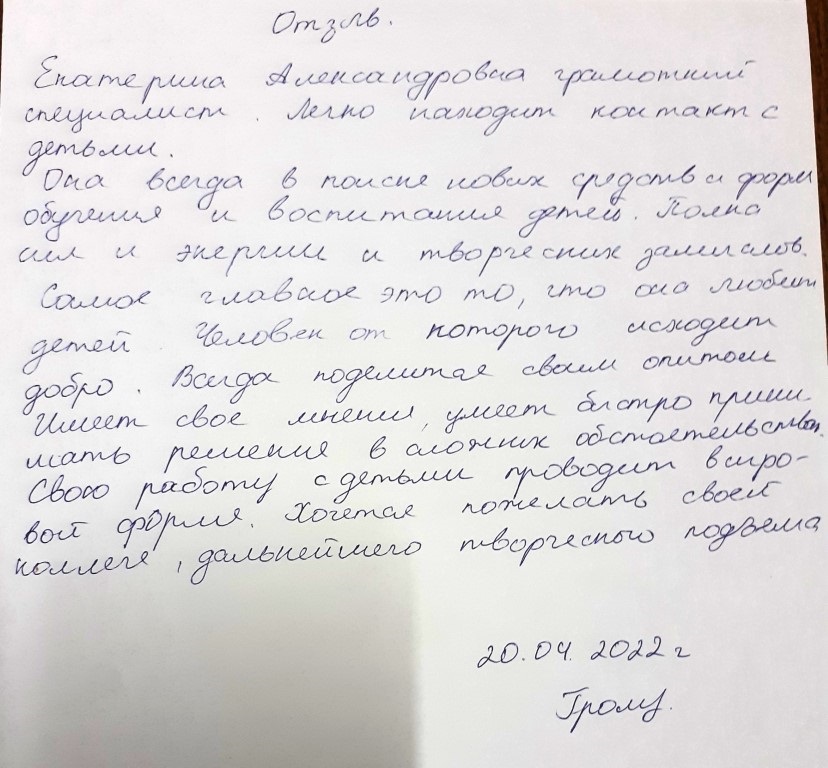 Отзыв.
Екатерина Александровна грамотный
специалист. Легко находит контакт с
детьми.
Она всегда в поиске новых средств и форм
обучения и воспитания детей. Полна
сил и энергии и творческих замыслов.
Самое главное это то, что она любит
детей. Человек от которого исходит
добро. Всегда поделится своим опытом
Имеет свое мнение, умеет быстро прини-
мать решения в сложных обстоятельствах.
Свою работу с детьми проводит в игро-
вой форме. Хочется пожелать своей
коллеге, дальнейшего творческого подъема
20.04.2022 г